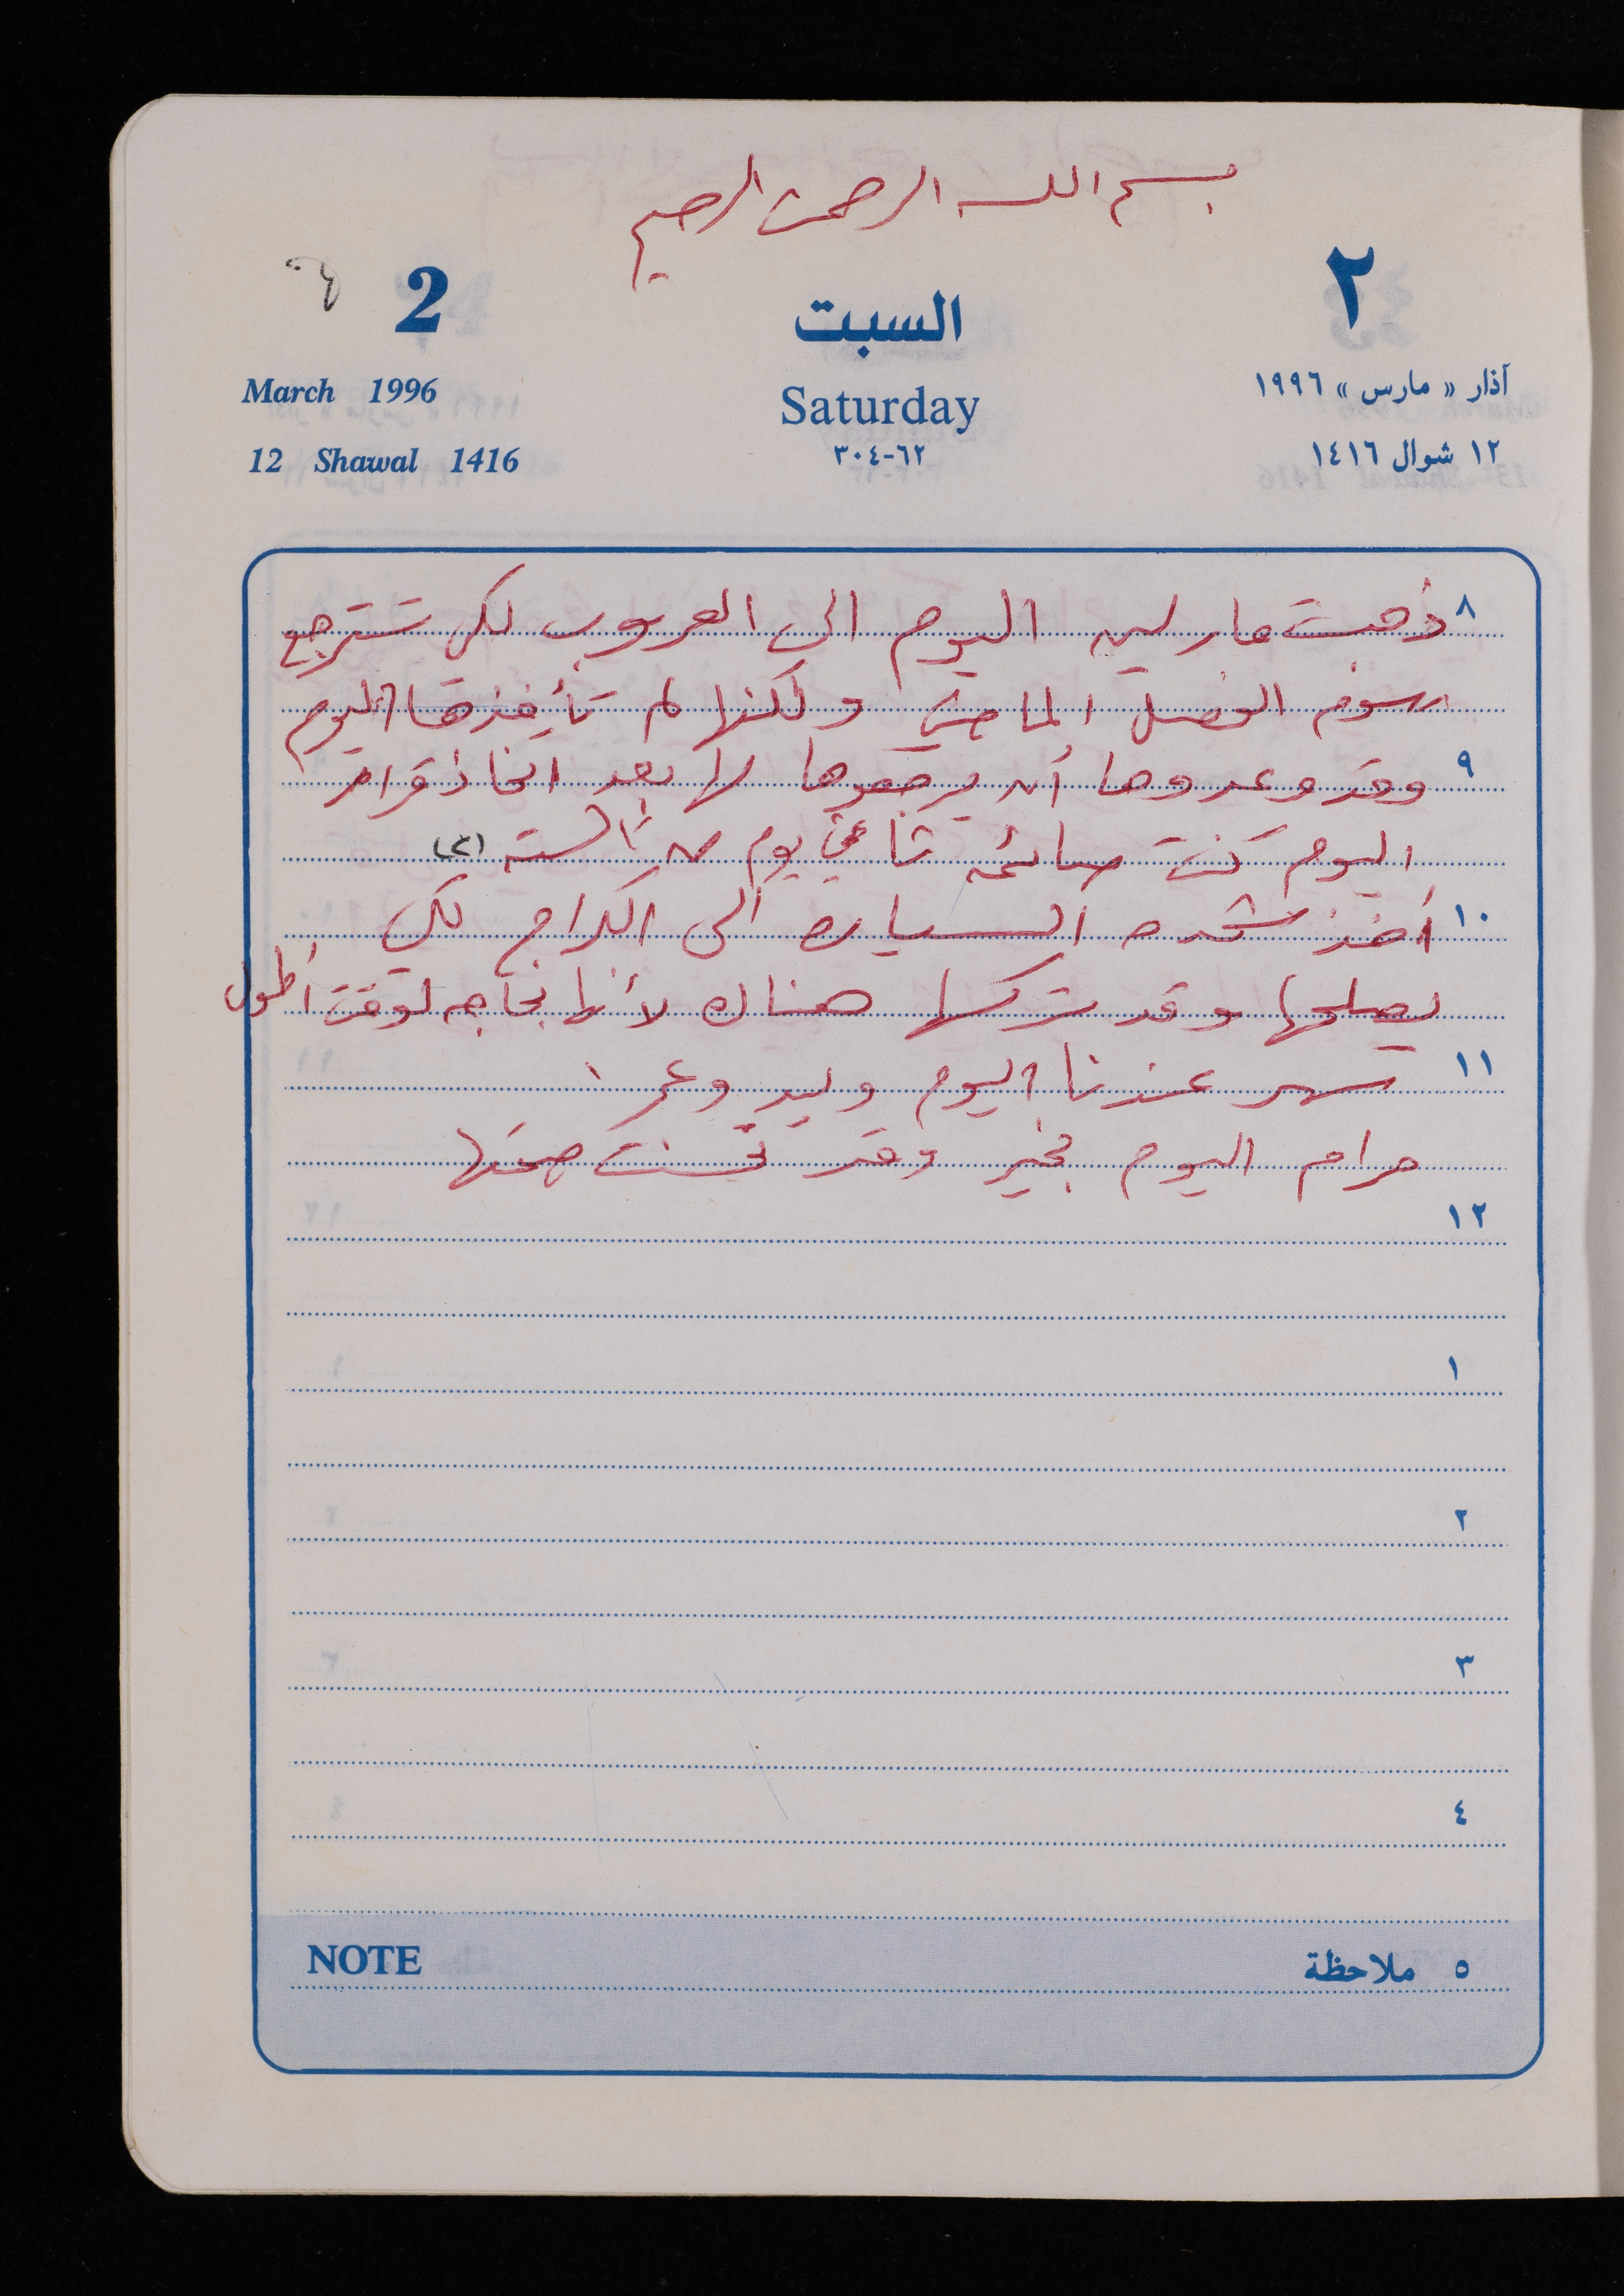 بسم الله الرحمن الرحيم
2 السبت ٢
March 1996 Saturday آذار « مارس » ١٩٩٦
12 Shawal 1416 ٦٢-٣٠٤ ١٢ شوال ١٤١٦
٨ ذهبت مارلين اليوم الى العروب لكي تسترجع
رسوم الفصل الماضي ولكنها لم تأخذها اليوم
٩ وقد وعدوها أن يرجعوها لها بعد اتخاذ قرار
اليوم كنت صائمة ثاني يوم من الستة (٢)
١٠ أخذ شحده السياره الى الكراج لكي
يصلحها وقد تركها هناك لأنها بحاجه لوقت أطول
١١ سهر عندنا اليوم وليد وعمر
مرام اليوم بخير وقد تحسنت صحتها
١٢
١
٢
٣
٤
NOTE ٥ ملاحظة